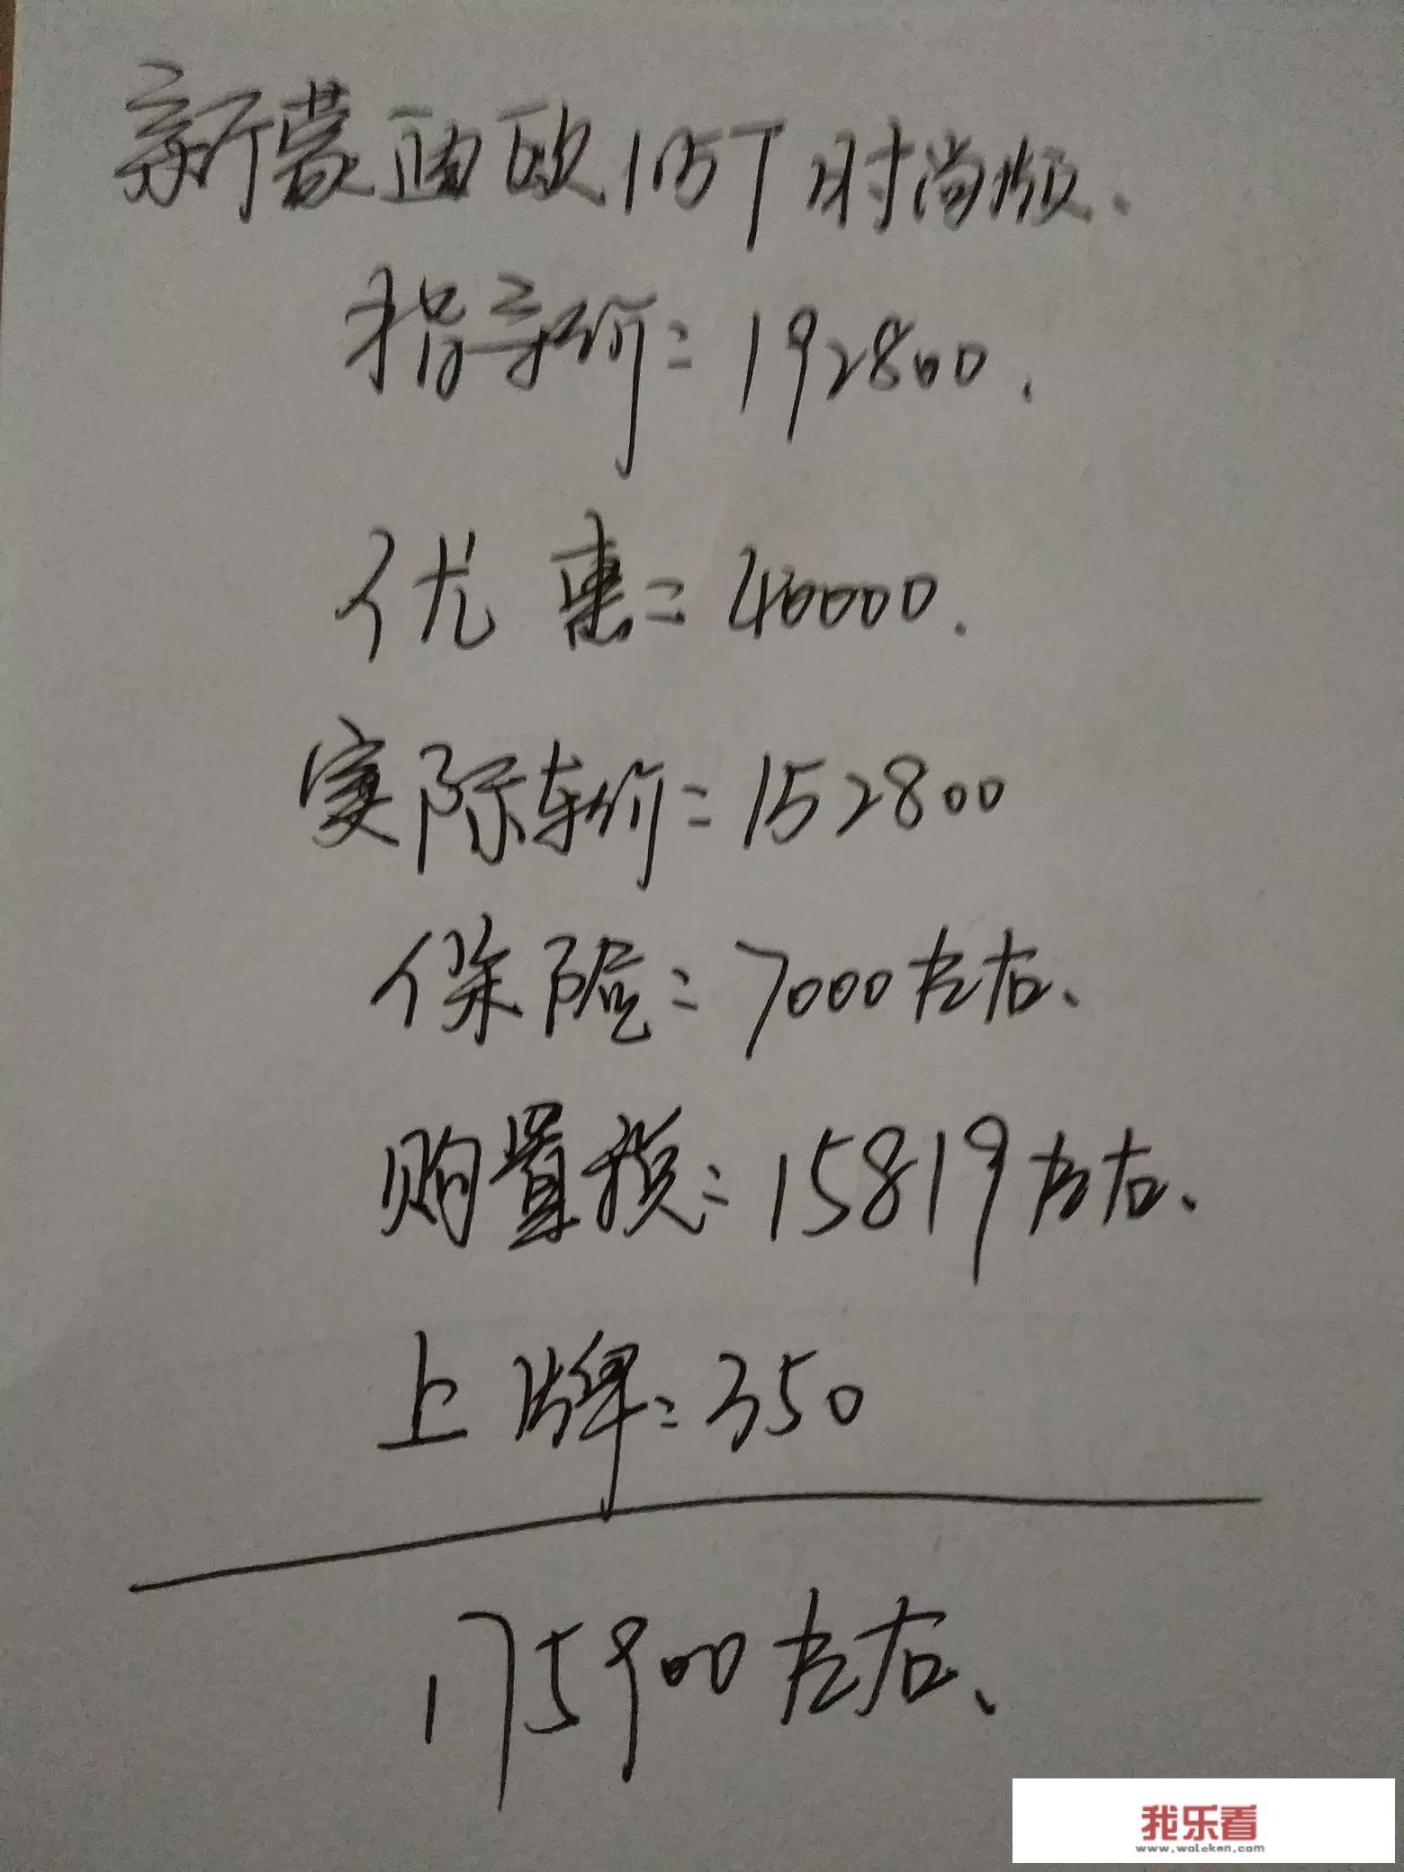 新蒙迪欧1.5T时尚版.
指导价=192800.
优惠=40000.
实际车价=152800
保险=7000左右、
购置税=15819左右、
上牌=350
175900左右、
我乐看
www.woleken.com